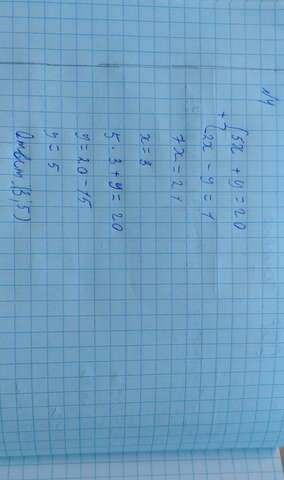 №4
{5x + y = 20
+ {2x - y = 1
7x = 21
x = 3
5 · 3 + y = 20
y = 20 - 15
y = 5
Ответ: (3; 5)